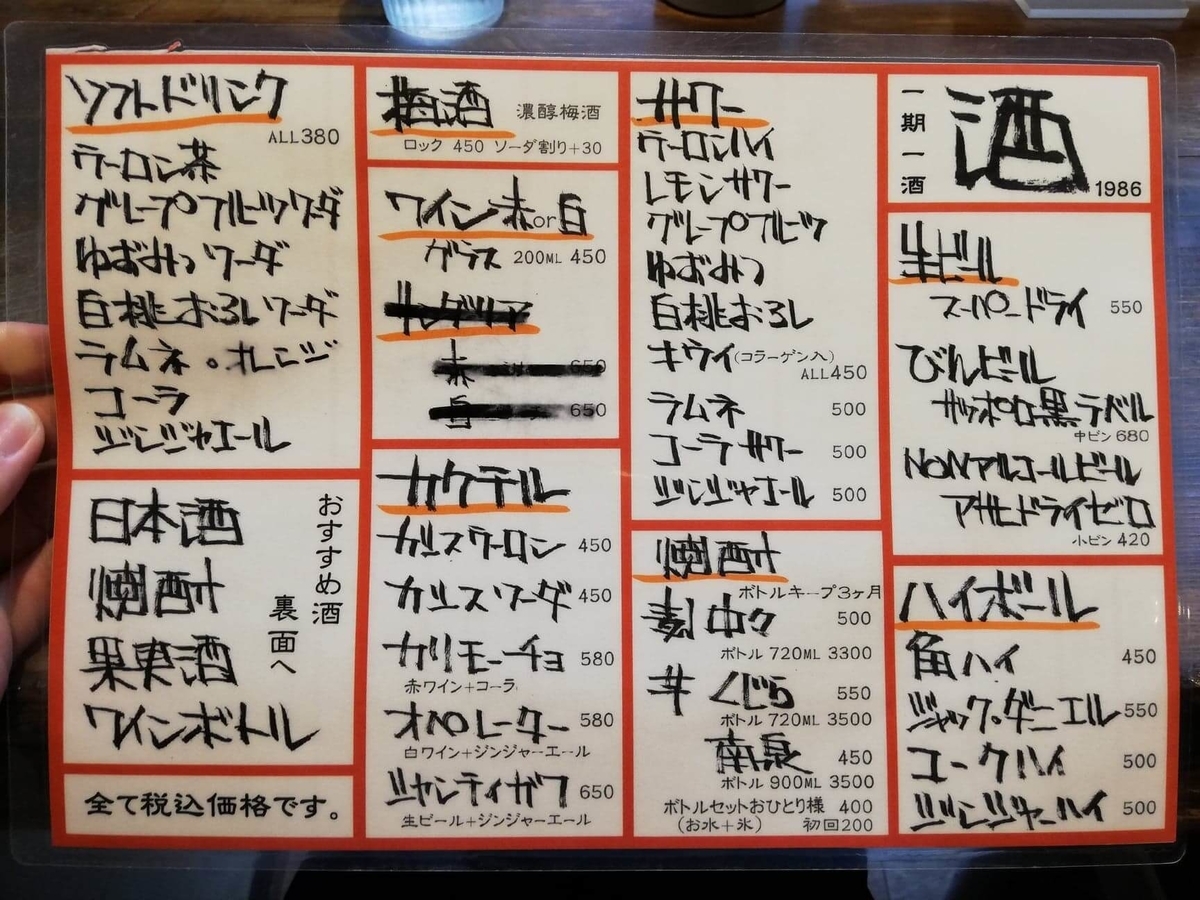 ソフトドリンク
ALL380
ウーロン茶
グレープフルーツソーダ
ゆずみつソーダ
白桃おろしソーダ
ラムネ・オレンジ
コーラ
ジンジャエール
日本酒
焼酎
果実酒
ワインボトル
おすすめ酒
裏面へ
全て税込価格です。
梅酒 濃醇梅酒
ロック 450 ソーダ割り+30
ワイン 赤or白
グラス 200ML 450
サングリア
赤 650
白 650
カクテル
カシスウーロン 450
カシスソーダ 450
カリモーチョ 580
赤ワイン+コーラ
オペレーター 580
白ワイン+ジンジャーエール
シャンディガフ 650
生ビール+ジンジャーエール
サワー
ウーロンハイ
レモンサワー
グレープフルーツ
ゆずみつ
白桃おろし
キウイ(コラーゲン入)
ALL450
ラムネ 500
コーラサワー 500
ジンジャエール 500
焼酎
ボトルキープ3ヶ月
麦 中々 500
ボトル 720ML 3300
芋 くじら 550
ボトル 720ML 3500
南泉 450
ボトル 900ML 3500
ボトルセットおひとり様 400
(お水+氷) 初回200
一期一酒
酒
1986
生ビール
スーパードライ 550
びんビール
サッポロ黒ラベル
中ビン 680
NONアルコールビール
アサヒドライゼロ
小ビン 420
ハイボール
角ハイ 450
ジャック・ダニエル 550
コークハイ 500
ジンジャーハイ 500